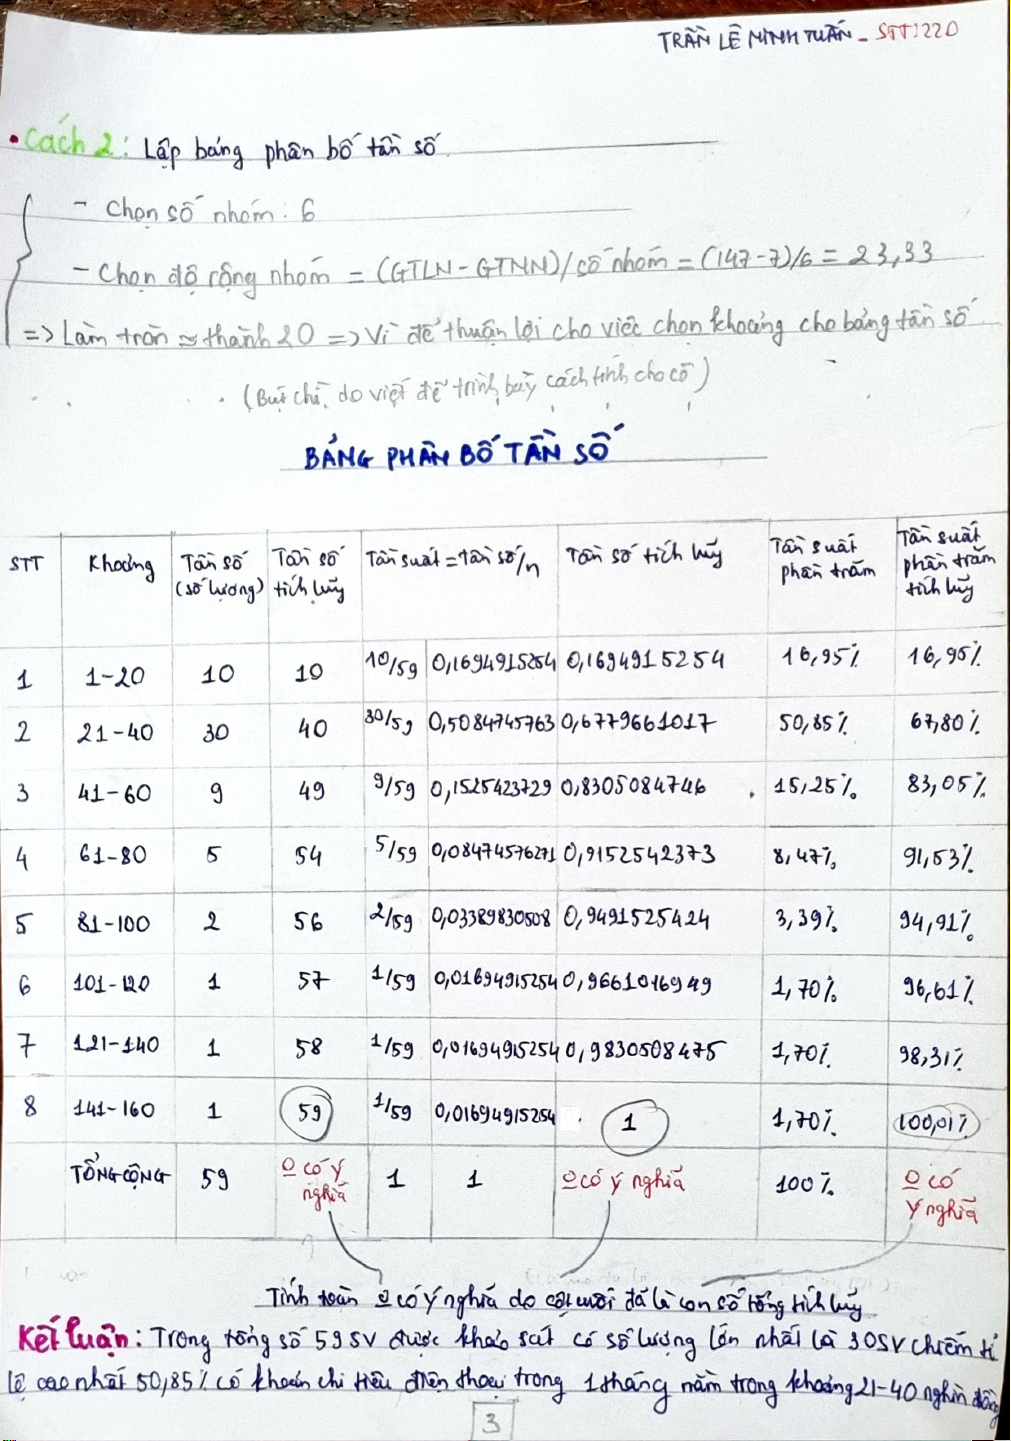 TRẦN LÊ MINH TUẤN - STT:220
• Cách 2: Lập bảng phân bố tần số
- Chọn số nhóm: 6
- Chọn độ rộng nhóm = (GTLN - GTNN)/số nhóm = (147-7)/6 = 23,33
=> Làm tròn ≈ thành 20 => Vì để thuận lợi cho việc chọn khoảng cho bảng tần số
(Bút chì, do viết để trình bày cách tính cho cô)
BẢNG PHÂN BỐ TẦN SỐ
STT | Khoảng | Tần số (số lượng) | Tần số tích lũy | Tần suất = Tần số/n | Tần số tích lũy | Tần suất phần trăm | Tần suất phần trăm tích lũy
1 | 1-20 | 10 | 10 | 10/59 | 0,1694915254 | 0,1694915254 | 16,95% | 16,95%
2 | 21-40 | 30 | 40 | 30/59 | 0,5084745763 | 0,6779661017 | 50,85% | 67,80%
3 | 41-60 | 9 | 49 | 9/59 | 0,1525423729 | 0,8305084746 | 15,25% | 83,05%
4 | 61-80 | 5 | 54 | 5/59 | 0,08474576271 | 0,9152542373 | 8,47% | 91,53%
5 | 81-100 | 2 | 56 | 2/59 | 0,03389830508 | 0,9491525424 | 3,39% | 94,91%
6 | 101-120 | 1 | 57 | 1/59 | 0,01694915254 | 0,9661016949 | 1,70% | 96,61%
7 | 121-140 | 1 | 58 | 1/59 | 0,01694915254 | 0,9830508475 | 1,70% | 98,31%
8 | 141-160 | 1 | 59 | 1/59 | 0,01694915254 | 1 | 1,70% | 100,01%
TỔNG CỘNG | 59 | O có ý nghĩa | 1 | 1 | O có ý nghĩa | 100% | O có ý nghĩa
Tính toán O có ý nghĩa do cột cuối đã là con số tổng tích lũy
Kết luận: Trong tổng số 59SV được khảo sát có số lượng lớn nhất là 30SV chiếm tỉ
lệ cao nhất 50,85% có khoản chi tiêu điện thoại trong 1 tháng nằm trong khoảng 21-40 nghìn đồng
3